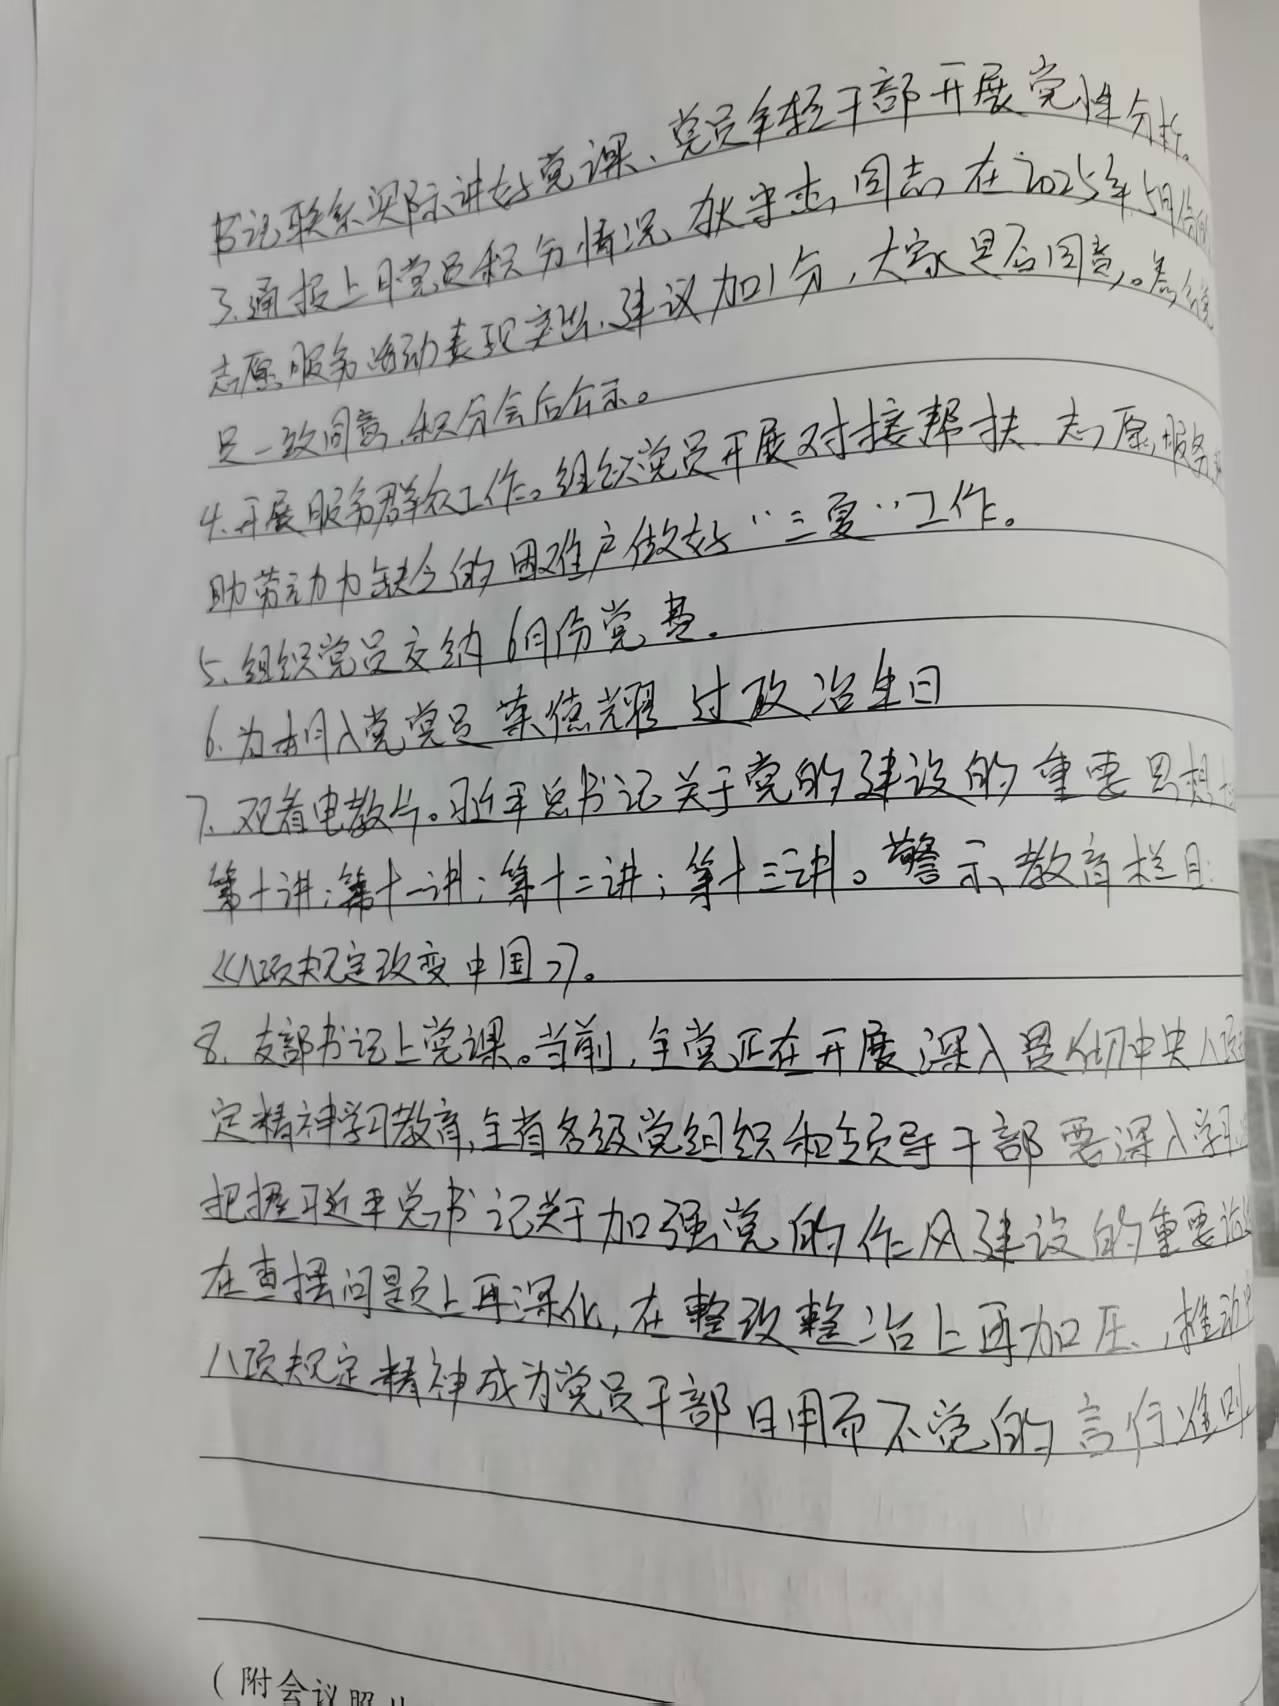 书记联系实际讲好党课、党员年轻干部开展党性分析。
3.通报上月党员积分情况 狄守杰同志在2025年5月份
志愿服务活动表现突出,建议加1分,大家是否同意。参会党
员一致同意,积分会后公示。
4.开展服务群众工作。组织党员开展对接帮扶、志愿服务
助劳动力缺乏的困难户做好"三夏"工作。
5.组织党员交纳6月份党费。
6.为本月入党党员 德耀 过政治生日
7.观看电教片。习近平总书记关于党的建设的重要思想
第十讲;第十一讲;第十二讲;第十三讲。警示教育栏目:
《八项规定改变中国》。
8.支部书记上党课。当前,全党正在开展深入贯彻中央八项
定精神学习教育,全省各级党组织和领导干部要深入学习
把握习近平总书记关于加强党的作风建设的重要论述
在查摆问题上再深化,在整改整治上再加压,推动
八项规定精神成为党员干部日用而不觉的言行准则
(附会议照片